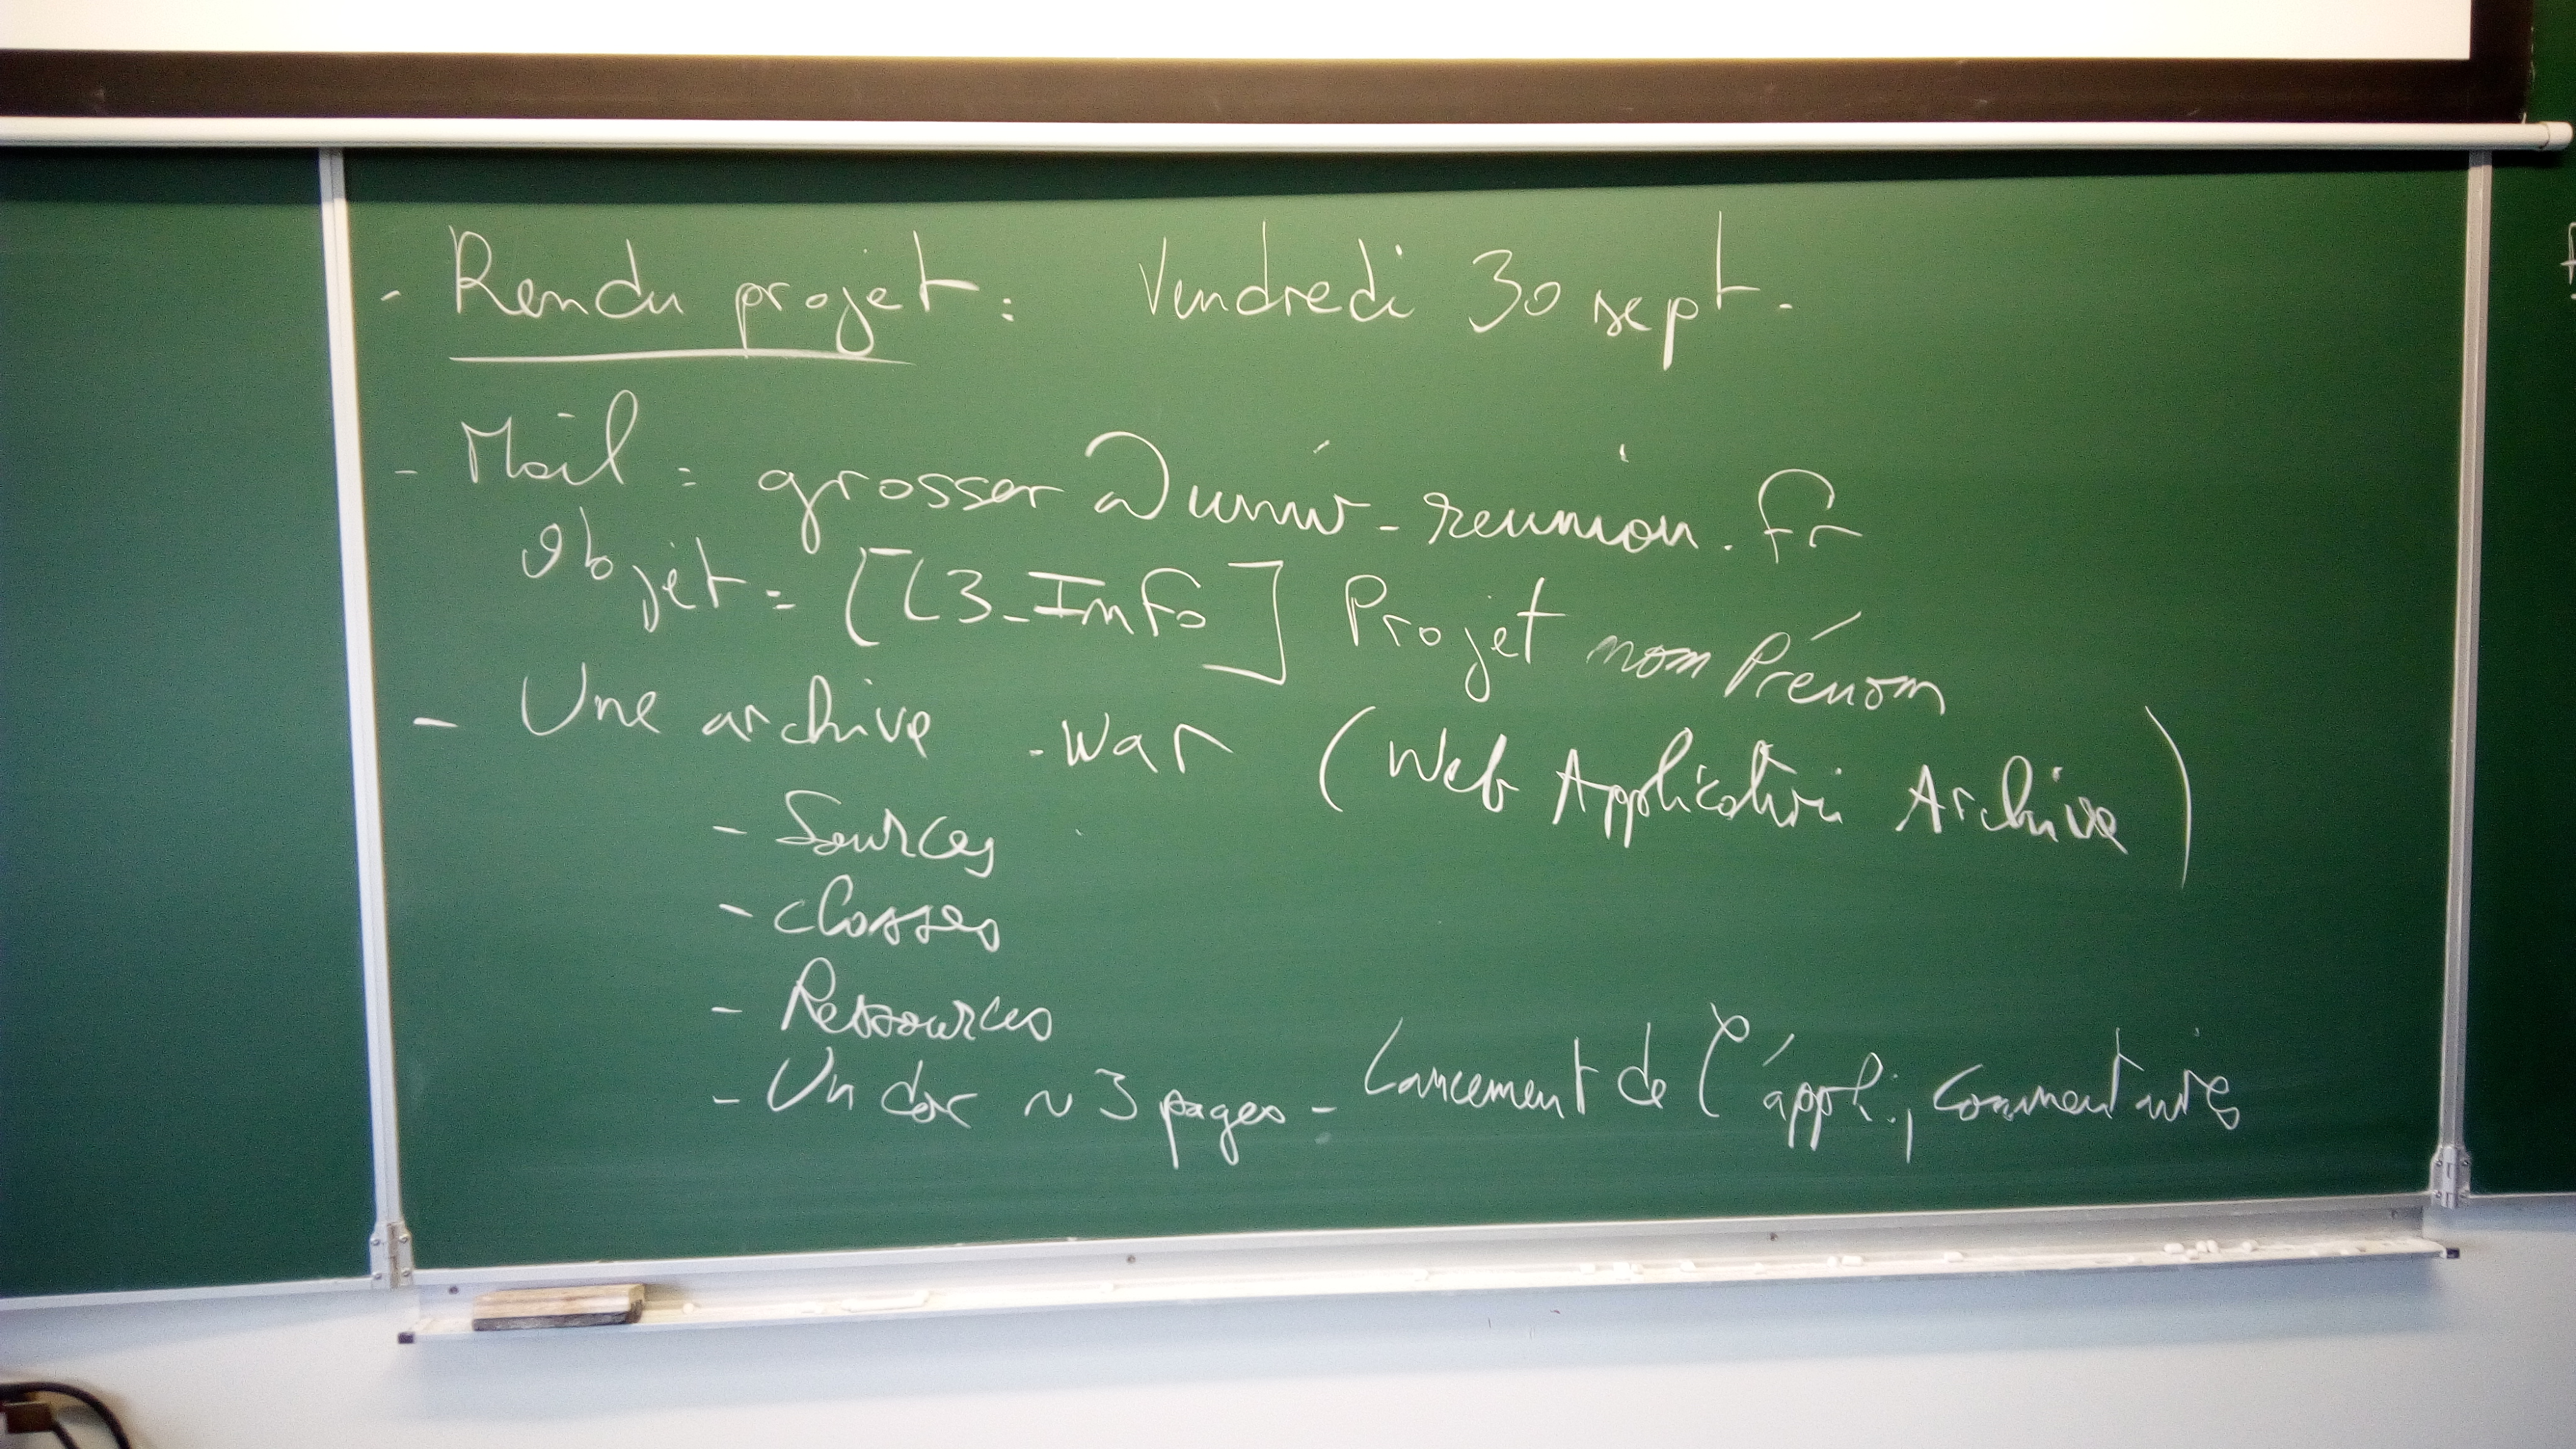 - Rendu projet : Vendredi 30 sept.
- Mail : grosser@univ-reunion.fr
Objet : [L3_Info] Projet nom Prénom
- Une archive .war (Web Application Archive)
- Sources
- classes
- Ressources
- Un doc ~ 3 pages - Lancement de l'appli, commentaires